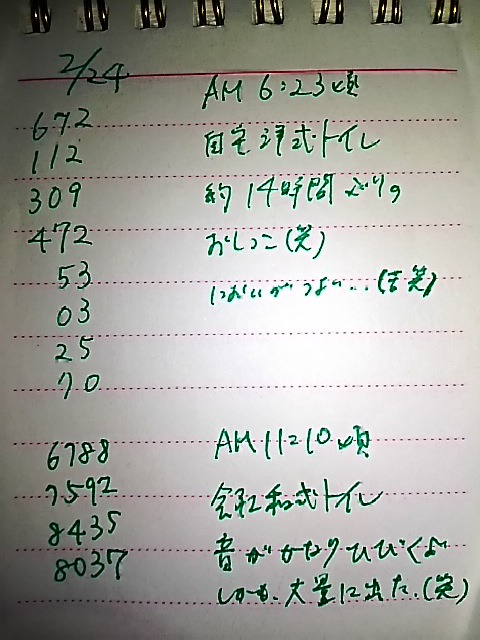 2/24
672 AM 6:23頃
112 自宅洋式トイレ
309 約14時間ぶりの
472 おしっこ(笑)
53 においがつよい...(苦笑)
03
25
70
6788 AM 11:10頃
7592 会社和式トイレ
8435 音がかなりひびくよ
8037 しかも、大量に出た.(笑)